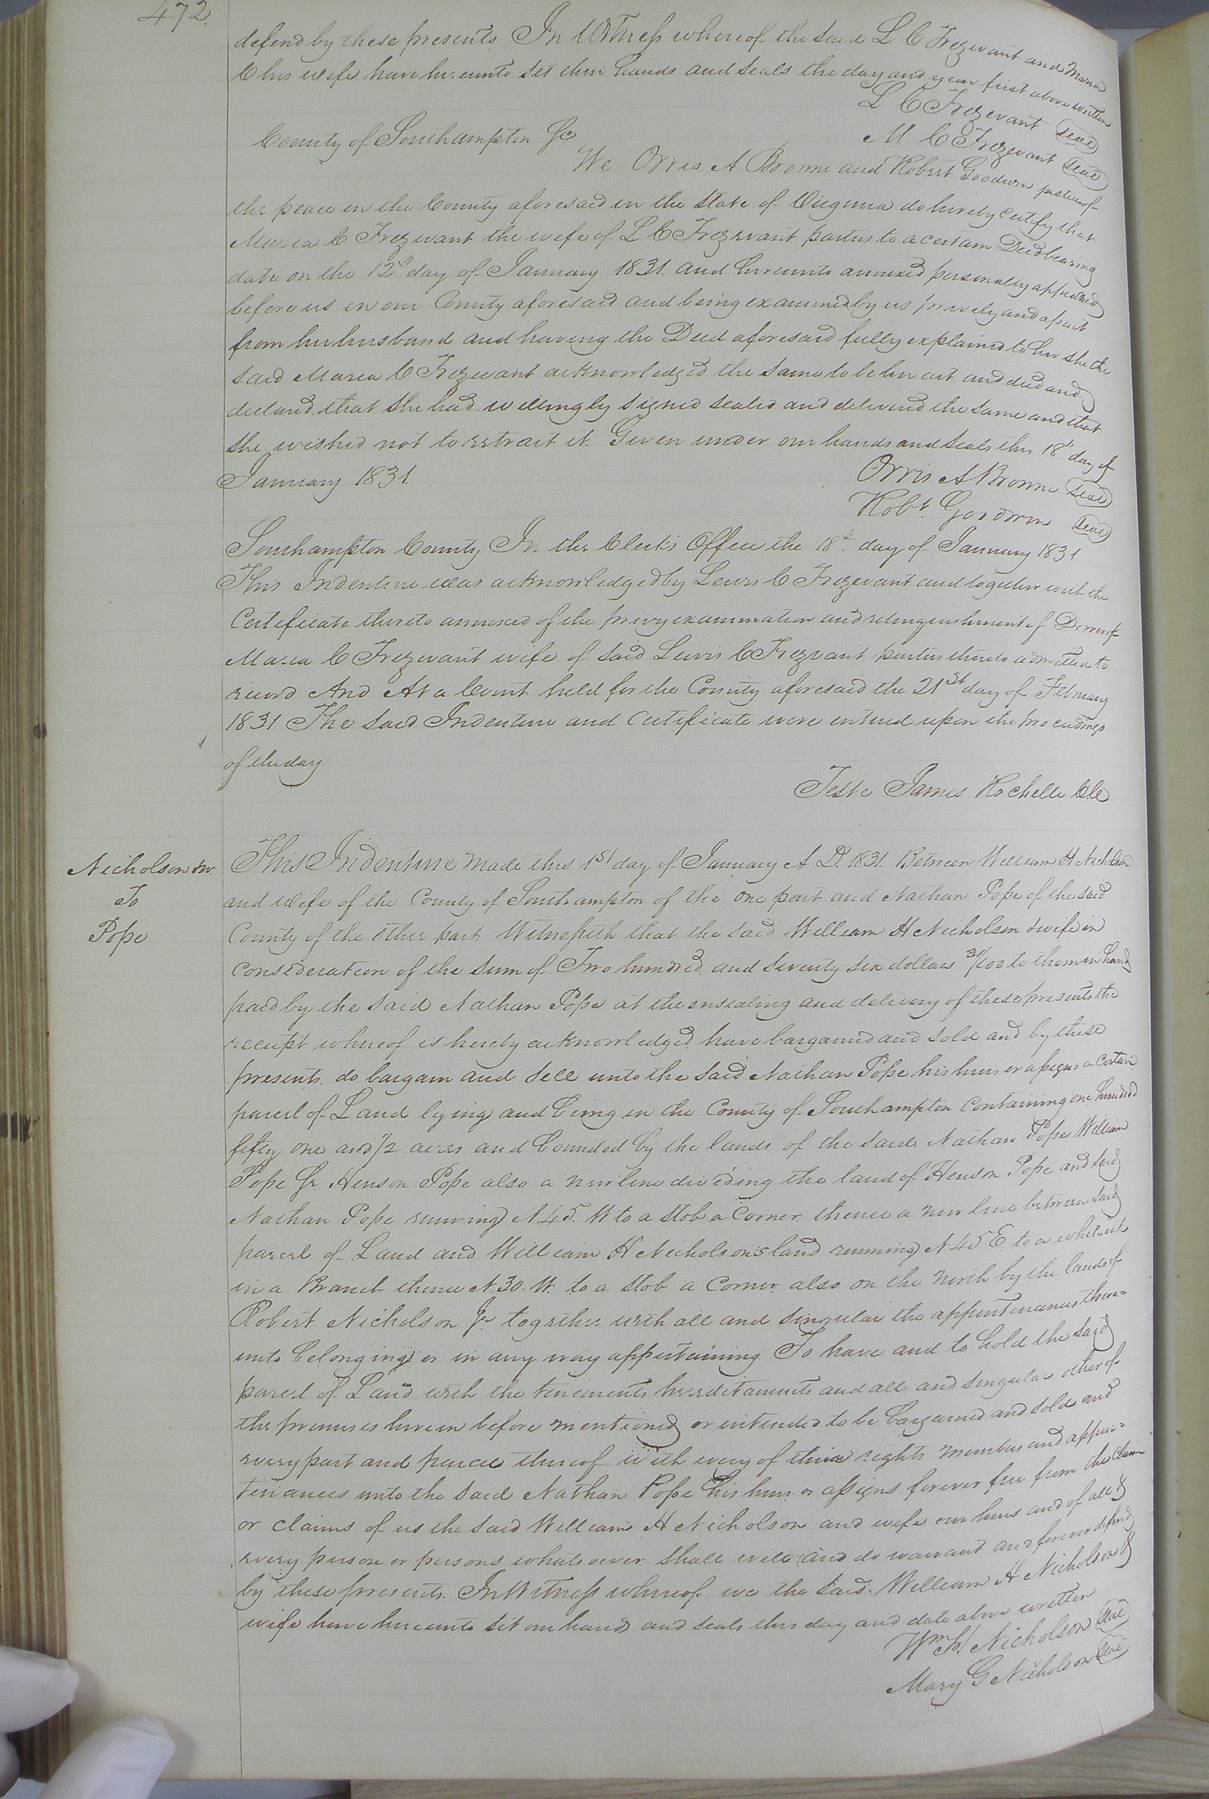 472.
defend by these presents In Witness whereof the said L C Trezvant and Maria
C his wife have hereunto set their hands and seals the day and year first above written
L C Trezvant (seal)
M C Trezvant (seal)
County of Southampton Sc
We Orris A Browne and Robert Goodwin justices of
the peace in the County aforesaid in the State of Virginia do hereby certify that
Maria C Trezevant the wife of L C Trezevant parties to a certain Deed bearing
date on the 12th day of January 1831. and hereunto annexed personally appeared
before us in our County aforesaid and being examined by us privily and apart
from her husband and having the Deed aforesaid fully explained to her she the
said Maria C Trezevant acknowledged the same to be her act and deed and
declared that she had willingly signed sealed and delivered the same and that
she wished not to retract it. Given under our hands and seals this 18th day of
January 1831.
Orris A Browne (seal)
Robt. Goodwin (seal)
Southampton County In the Clerk's Office the 18th. day of January 1831
This Indenture was acknowledged by Lewis C Trezevant and together with the
Certificate thereto annexed of the privy examination and relinquishment of Dower of
Maria C Trezevant wife of said Lewis C Trezvant parties thereto admitted to
record And At a Court held for the County aforesaid the 21st day of February
1831 The said Indenture and Certificate were entered upon the proceedings
of the day
Teste James Rochelle Clk
Nicholson & w.
To
Pope
This Indenture made this 1st day of January A D. 1831. Between William H Nicholson
and wife of the County of Southampton of the one part and Nathan Pope of the said
County of the other part Witnesseth that the said William H Nicholson & wife in
consideration of the sum of Two hundred and seventy six dollars /100 to them in hand
paid by the said Nathan Pope at the ensealing and delivery of these presents the
receipt whereof is hereby acknowledged have bargained and sold and by these
presents do bargain and sell unto the said Nathan Pope his heirs or assigns a certain
parcel of Land lying and being in the County of Southampton containing one hundred
fifty one and 1/2 acres and bounded by the lands of the said Nathan Pope William
Pope Jr Henson Pope also a new line dividing the land of Henson Pope and said
Nathan Pope running N 45. W to a stob a Corner thence a new line between said
parcel of Land and William H Nicholson's land running N 45 E to a white oak
in a Branch thence N. 30. W. to a stob a corner also on the north by the lands of
Robert Nicholson Jr. together with all and singular the appurtenances there=
unto belonging or in any way appertaining To have and to hold the said
parcel of Land with the tenements hereditaments and all and singular other of
the premises herein before mentioned or intended to be bargained and sold and
every part and parcel thereof with every of their rights members and appur=
tenances unto the said Nathan Pope his heirs or assigns forever free from the claim
or claims of us the said William H Nicholson and wife our heirs and of all &
every person or persons whatsoever shall will and do warrant and forever defend
by these presents. In Witness whereof we the said William H Nicholson &
wife have hereunto set our hands and seals this day and date above written
Wm H Nicholson (seal)
Mary G Nicholson (seal)